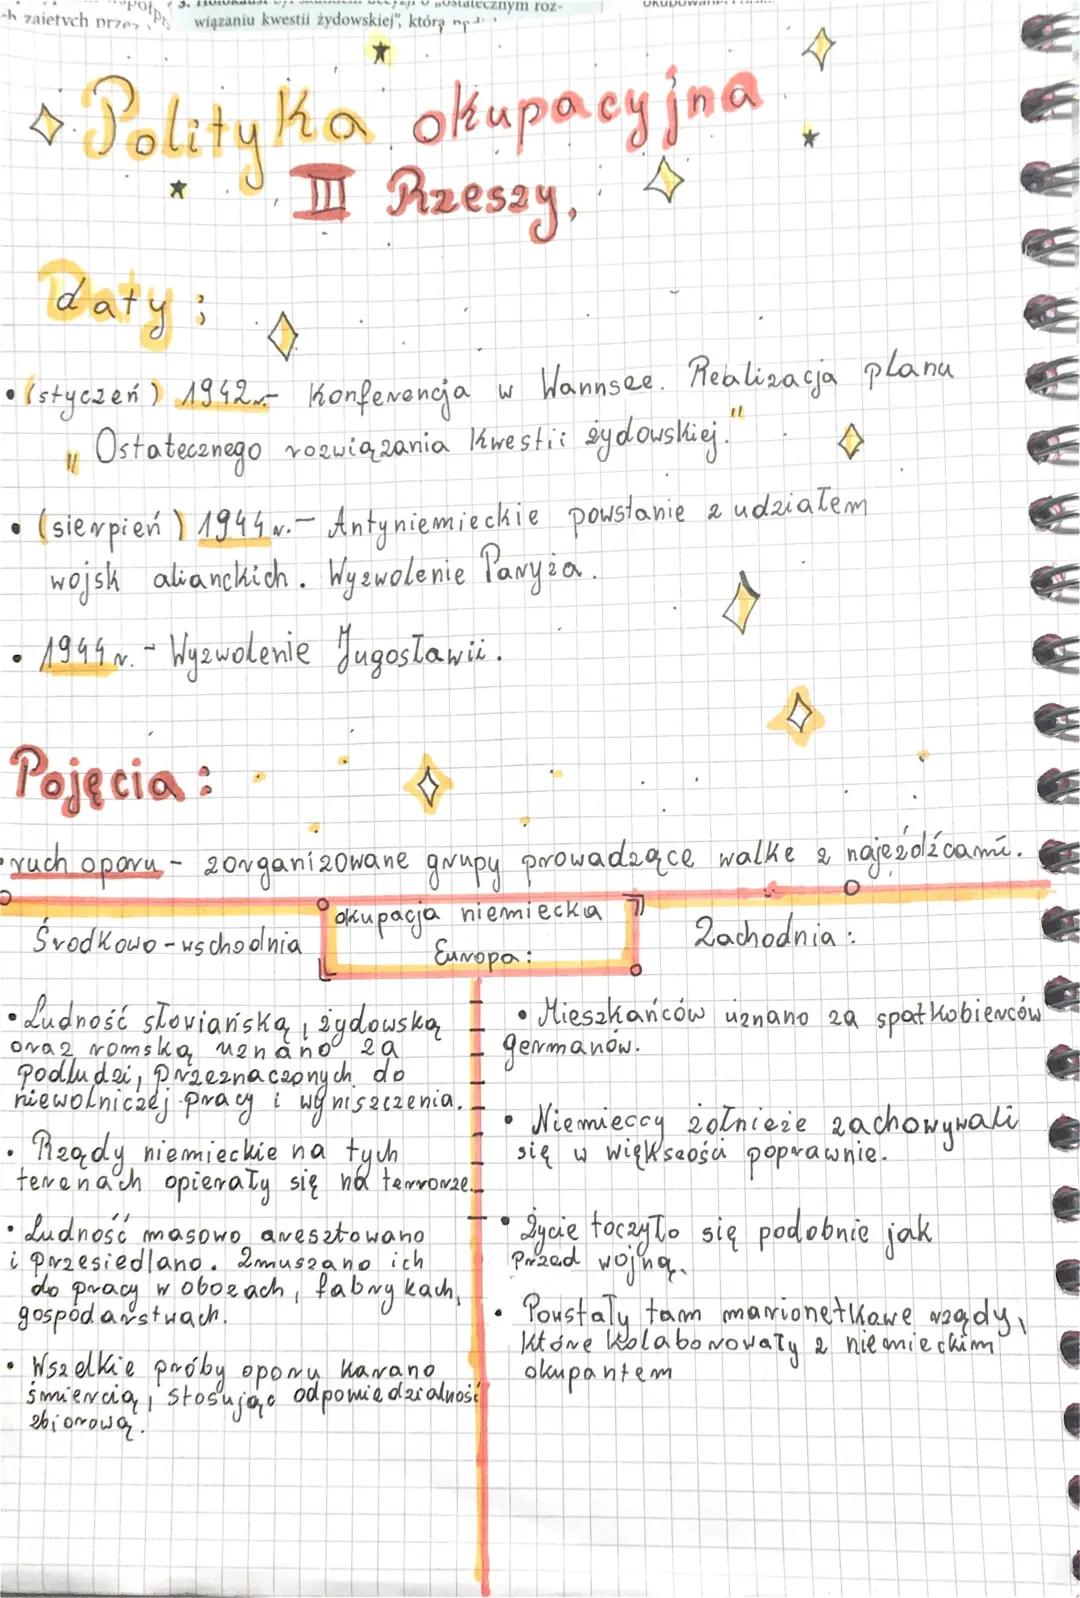 zajętych przez
wiązaniu kwestii żydowskiej", którą
Polityka okupacyjna
III Rzeszy,
daty:
• (styczeń) 1942r.- Konferencja w Wannsee. Realizacja planu
"Ostatecznego rozwiązania kwestii żydowskiej."
• (sierpień) 1944r.- Antyniemieckie powstanie z udziałem
wojsk alianckich. Wyzwolenie Paryża.
• 1944r.- Wyzwolenie Jugosławii.
Pojęcia:
• ruch oporu - zorganizowane grupy prowadzące walkę z najeźdźcami.
okupacja niemiecka
Europa:
Środkowo-wschodnia
• Ludność słowiańską, żydowską
oraz romską uznano za
podludzi, przeznaczonych do
niewolniczej pracy i wyniszczenia.
• Rządy niemieckie na tych
terenach opierały się na terrorze.
• Ludność masowo aresztowano
i przesiedlano. Zmuszano ich
do pracy w obozach, fabrykach,
gospodarstwach.
• Wszelkie próby oporu karano
śmiercią, stosując odpomiedzialność
zbiorową.
Zachodnia:
• Mieszkańców uznano za spatkobierców
germanów.
• Niemieccy żołnieże zachowywali
się w większości poprawnie.
• Życie toczyło się podobnie jak
przed wojną.
• Powstały tam marionetkowe rządy,
które kolaborowały z niemieckim
okupantem